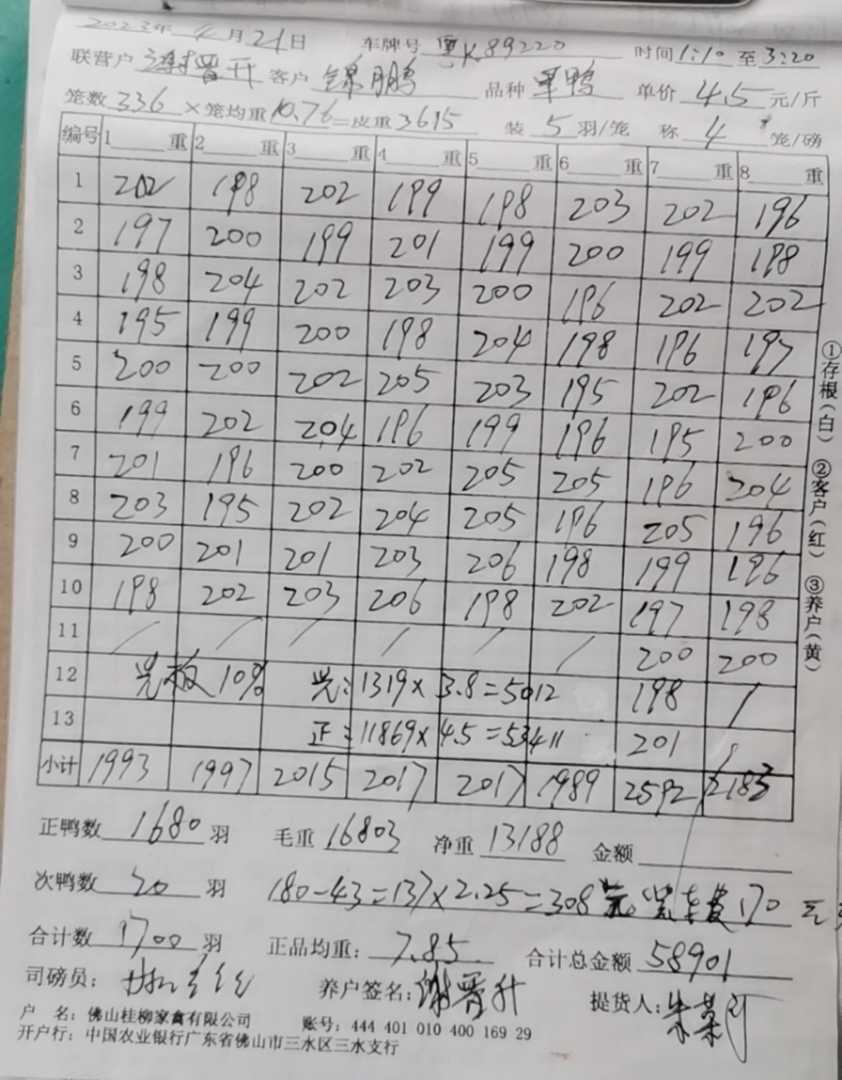 2023年4月21日 车牌号 粤K89220 时间1:10至3:20
联营户 谢晋升 客户 锦鹏 品种 旱鸭 单价 4.5 元/斤
笼数 336 ×笼均重 10.76 = 皮重 3615 装 5 羽/笼 称 4 笼/磅
编号 1 重 2 重 3 重 4 重 5 重 6 重 7 重 8 重
1 202 198 202 199 198 203 202 196
2 197 200 199 201 199 200 199 198
3 198 204 202 203 200 196 202 202
4 195 199 200 198 204 198 196 197
5 200 200 202 205 203 195 202 196
6 199 202 204 196 199 196 195 200
7 201 196 200 202 205 205 196 204
8 203 195 202 204 205 196 205 196
9 200 201 201 203 206 198 199 196
10 198 202 203 206 198 202 197 198
11 / / / / / / 200 200
12 光板10% 光:1319×3.8=5012 198 /
13 正:11869×4.5=53411 201 /
小计 1993 1997 2015 2017 2017 1989 2592 2183
正鸭数 1680 羽 毛重 16803 净重 13188 金额
次鸭数 20 羽 180-43=137×2.25=308元 车费170元
合计数 1700 羽 正品均重: 7.85 合计总金额 58901
司磅员: 养户签名: 谢晋升 提货人: 朱
户 名: 佛山桂柳家禽有限公司 账号: 444 401 010 400 169 29
开户行: 中国农业银行广东省佛山市三水区三水支行
①存根(白) ②客户(红) ③养户(黄)